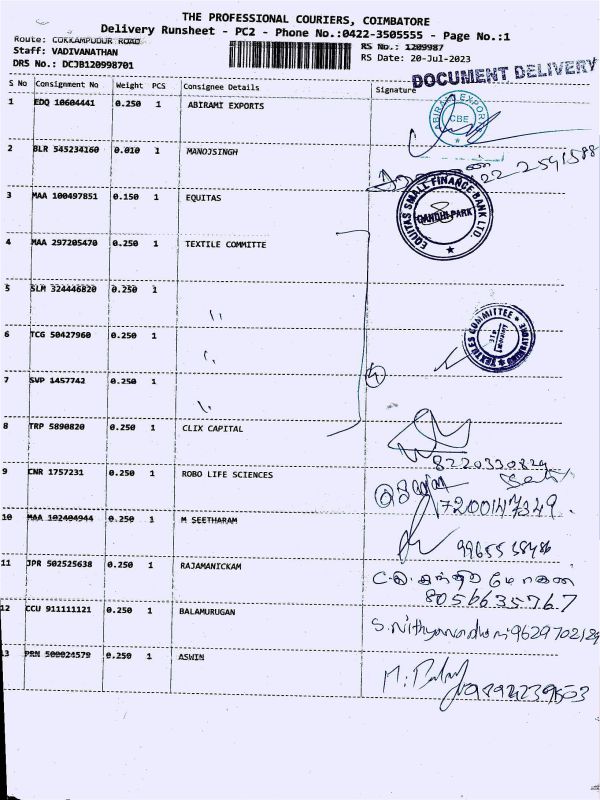 THE PROFESSIONAL COURIERS, COIMBATORE
Delivery Runsheet - PC2 - Phone No.:0422-3505555 - Page No.:1
Route: COKKAMPUDUR ROAD
RS No.: 1209987
Staff: VADIVANATHAN
RS Date: 20-Jul-2023
DRS No.: DCJB120998701
DOCUMENT DELIVERY
S No Consignment No Weight PCS Consignee Details Signature
1 EDQ 10604441 0.250 1 ABIRAMI EXPORTS
ABIRAMI EXPORTS
CBE
2 BLR 545234160 0.010 1 MANOJSINGH
22 2591588
3 MAA 100497851 0.150 1 EQUITAS
EQUITAS SMALL FINANCE BANK LTD.
GANDHI PARK
4 MAA 297205470 0.250 1 TEXTILE COMMITTE
5 SLM 324446820 0.250 1
TEXTILES COMMITTEE
COIMBATORE
6 TCG 50427960 0.250 1
7 SVP 1457742 0.250 1
4
8 TRP 5890820 0.250 1 CLIX CAPITAL
8220330829
9 CNR 1757231 0.250 1 ROBO LIFE SCIENCES
7200147349.
10 MAA 102404944 0.250 1 M SEETHARAM
11 JPR 502525638 0.250 1 RAJAMANICKAM
8056635767
12 CCU 911111121 0.250 1 BALAMURUGAN
9629702129
13 PRN 500024579 0.250 1 ASWIN